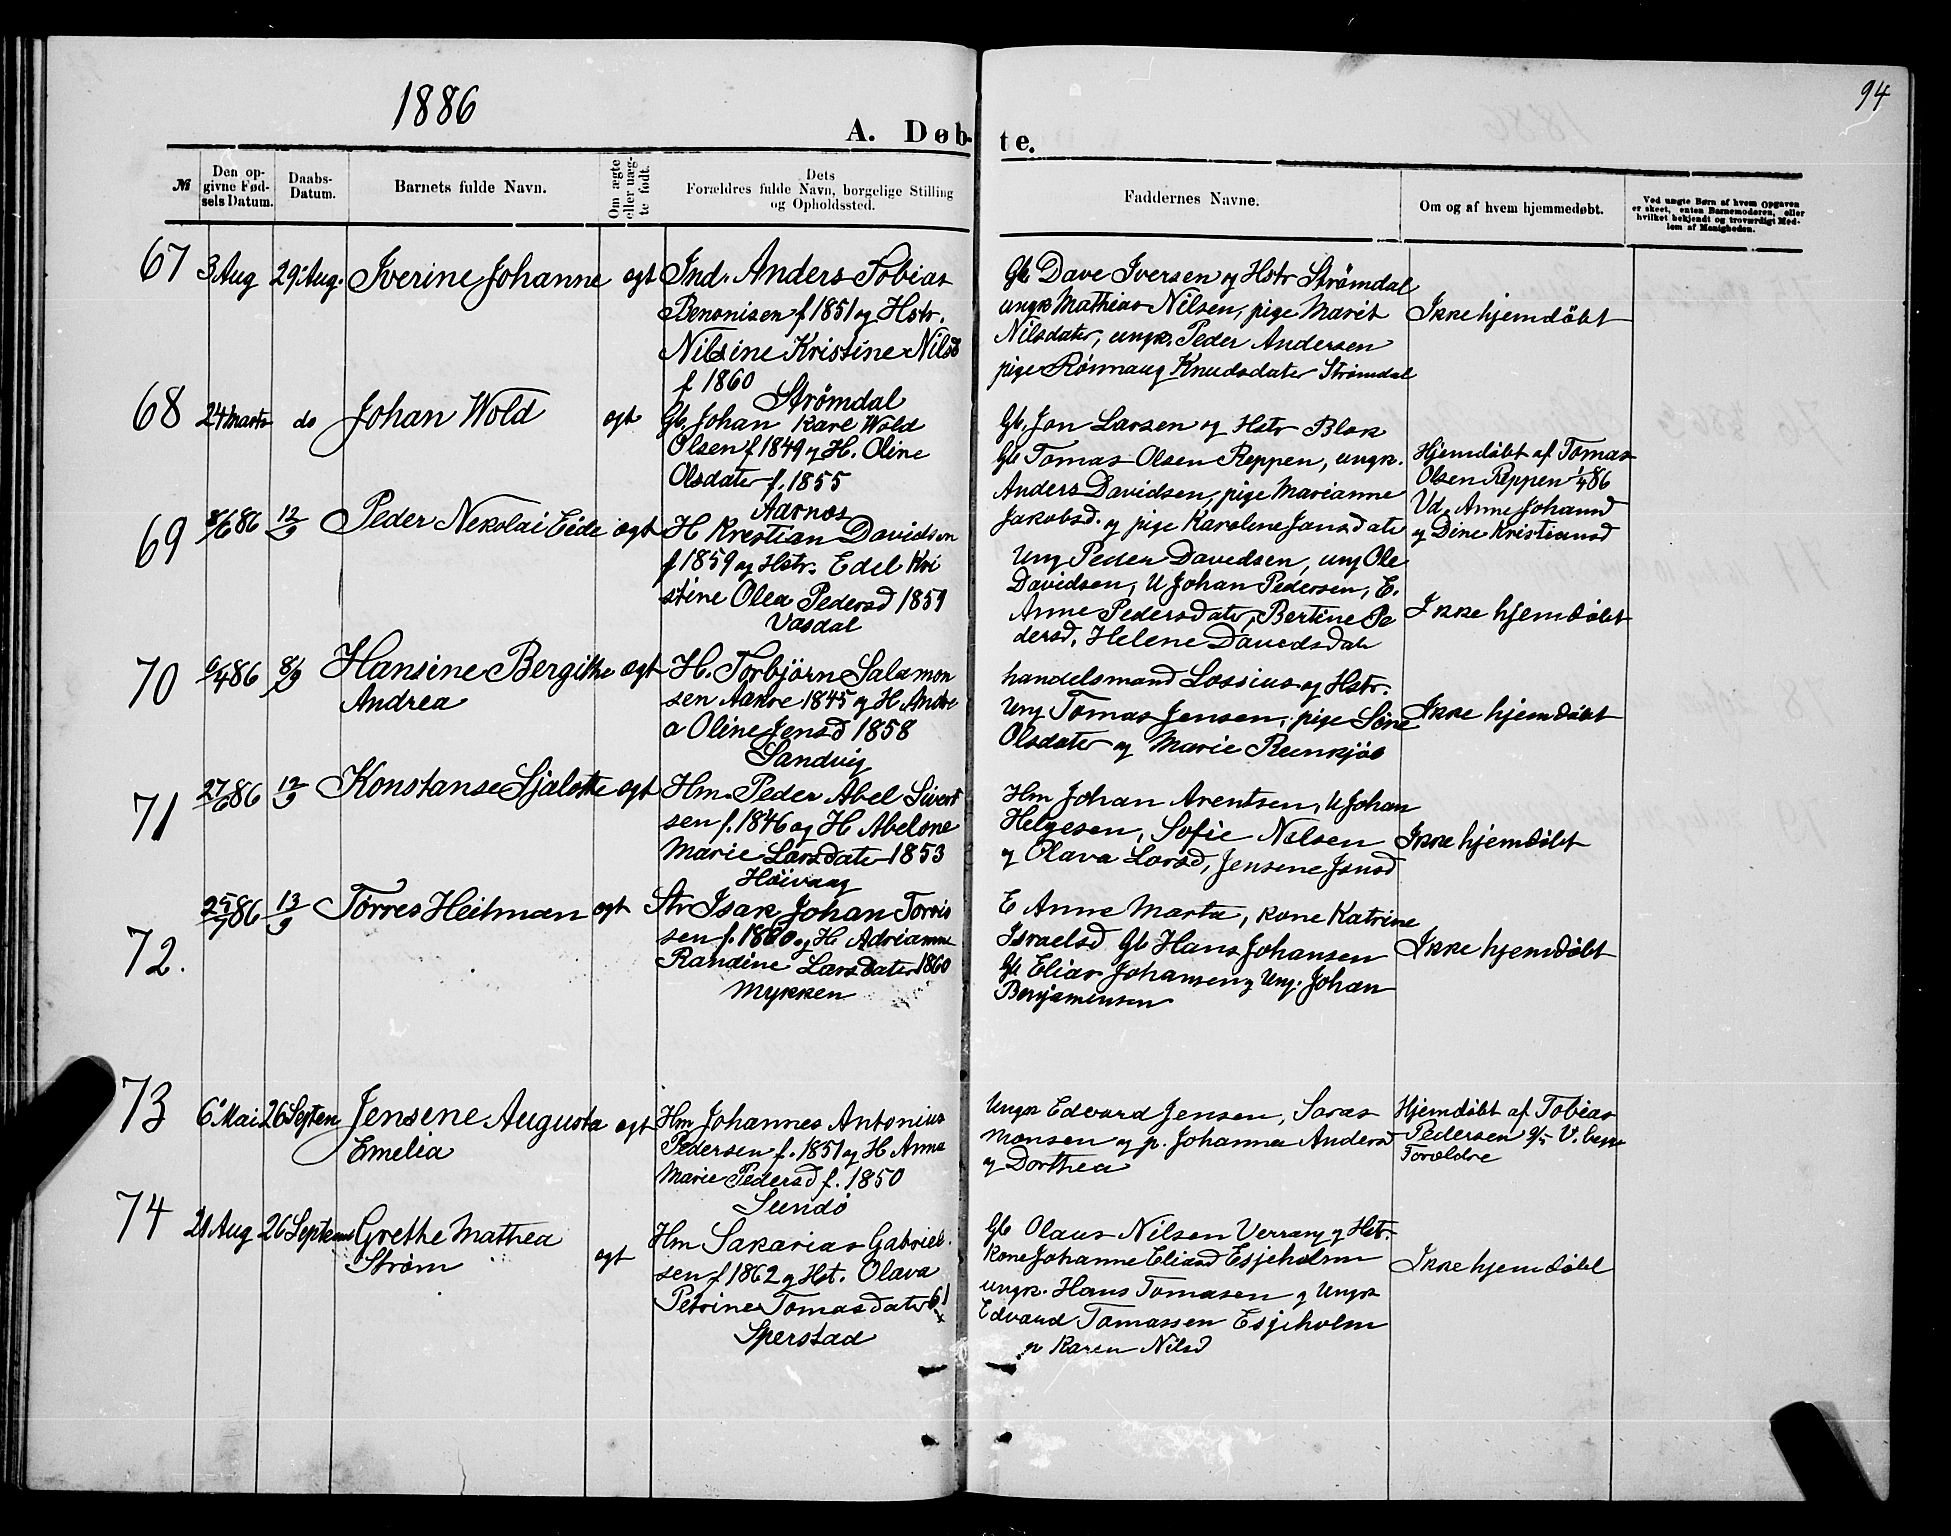 1886
94
A. Døb-
te.
№
Den op-
givne Fød-
sels Datum.
Daabs-
Datum.
Barnets fulde Navn.
Om ægte
eller uæg-
te født.
Dets
Forældres fulde Navn, borgelige Stilling
og Opholdssted.
Faddernes Navne.
Om og af hvem hjemmedøbt.
Ved uægte Børn af hvem Opgaven
er skeet, enten Barnemoderen, eller
hvilket bekjendt og troværdigt Med-
lem af Menigheden.
67
3 Aug
29 Aug.
Iverine Johanne
egt
Ind. Anders Tobias
Benonisen f 1851 og Hstr.
Nilsine Kristine Nilsd
f 1860
Strømdal
Gb Dave Iversen og Hstr Strømdal
ungk Mathias Nilsen, pige Marit
Nilsdater, ungk. Peder Andersen
pige Rönnaug Knudsdater Strømdal
Ikke hjemdöbt
68
24 Marts
do
Johan Wold
egt
Gb. Johan Karl Wold
Olsen f 1849 og H. Oline
Olsdater f. 1855
Aarnes
Gb. Jon Larsen og Hstr Blok
Gb Tomas Olsen Reppen, ungk.
Anders Davidsen, pige Marianne
Jakobsd. og pige Karoline Jansdater
Hjemdöbt af Tomas
Olsen Reppen 1/4 86
Vd. Anne Johansd
og Dine Kristiansd
69
8/6 86
12/9
Peder Nekolai Eide
egt
H Krestian Davidsen
f 1859 og Hstr. Edel Kri
stine Olea Pedersd 1859
Vasdal
Ung Peder Davedsen, ung Ole
Davidsen, U Johan Pedersen, E.
Anne Pedersdater, Bertine Pe
dersd, Helene Davedsdat
Ikke hjemdöbt
70
6/4 86
8/9
Hansine Bergithe
Andrea
egt
H. Torbjörn Salamon
sen Aakre 1845 og H. Andre
a Oline Jensd 1858
Sandvig
handelsmand Lossius og Hstr.
Ung Tomas Jensen, pige Sine
Olsdater og Marie Reinkjöb
Ikke hjemdöbt
71
27/6 86
12/9
Konstanse Sjalotte
egt
Hm. Peder Abel Sivert
sen f. 1846 og H Abelone
Marie Larsdater 1853
Höivaag
Hm Johan Arentsen, U Johan
Helgesen, Sofie Nilsen
og Olava Larsd, Jensene Jansd
Ikke hjemdöbt
72.
25/7 86
13/9
Torres Heitman
egt
Str Isak Johan Torris
sen f. 1860 og H. Adrianne
Randine Larsdater 1860
Mykken
E Anne Marta, Kone Katrine
Israelsd Gb Hans Johansen
Gb Elias Johansen og Ung. Johan
Benjamensen
Ikke hjemdöbt
73
6 Mai
26 Septem
Jensene Augusta
Emelia
egt
Hm Johannes Antonius
Pedersen f. 1851 og H Anna
Marie Pedersd f. 1850
Sundö
Ungk Edvard Jensen, Saras
Monsen og p. Johanna Andersd
og Dorthea
Hjemdöbt af Tobias
Pedersen 9/5 V. begge
Forældre
74
21 Aug
26 Septem
Grethe Mathea
Ström
egt
Hm Sakarias Gabriel-
sen f 1862 og Hst. Olava
Petrine Tomasdater 61
Sperstad
Gb Olaus Nilsen Verrang og Hst.
Kone Johanne Eliasd Esjeholm
ungk. Hans Tomasen og Ungk
Edvard Tomassen Esjeholm
p Karen Nilsd
Ikke hjemdöbt